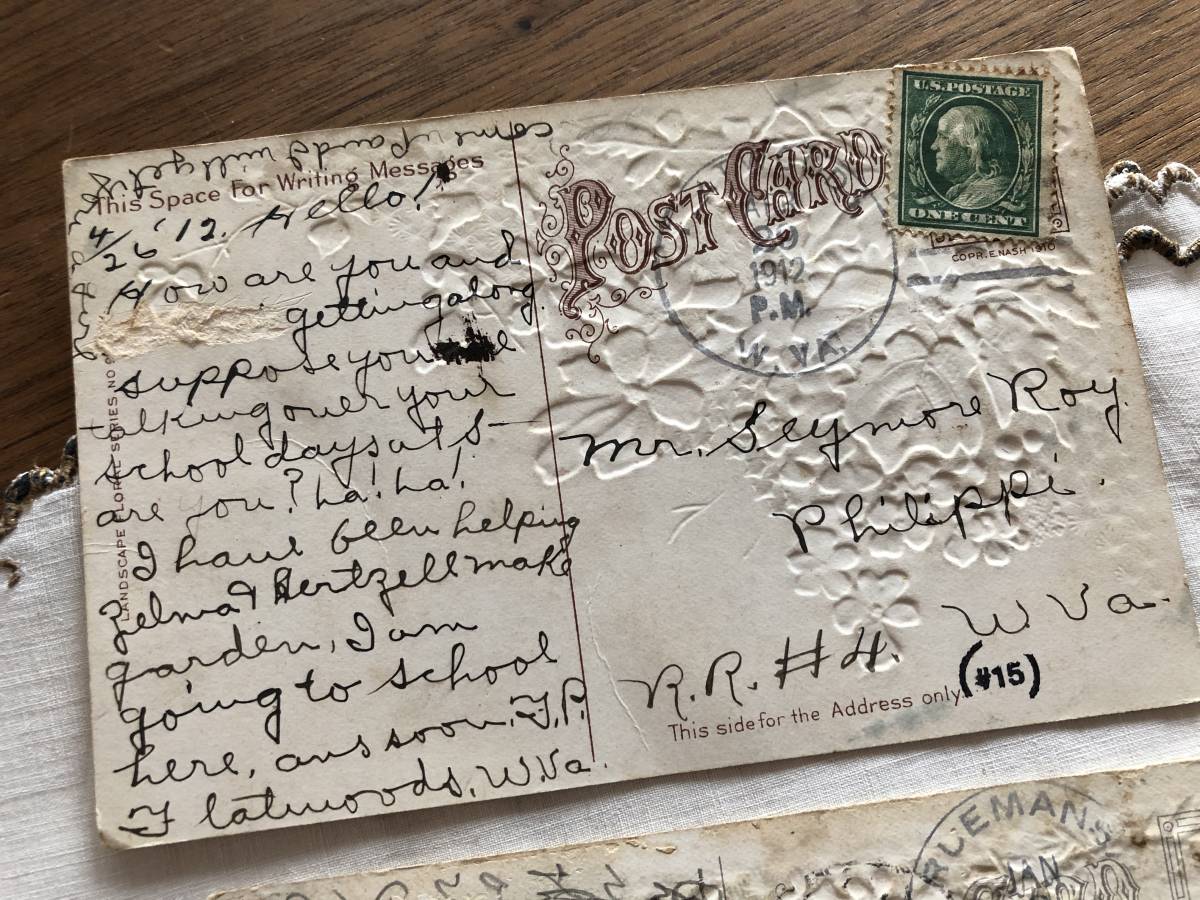 come up and I will get
This Space For Writing Messages
4/26 '12. Hello!
How are you and
getting along.
suppose you are
talking over your
school days at S—
are you? ha! ha!
I have been helping
Zelma & Hertzell make
garden, I am
going to school
here, ans soon. F.P.
Flatwoods, W.Va.
LANDSCAPE FLORAL SERIES NO
POST CARD
U.S. POSTAGE
ONE CENT
COPR. E. NASH 1910
1912
P.M.
W. VA.
Mr. Seymore Roy.
Philippi.
W Va.
R.R. #4.
(#15)
This side for the Address only.
RUEMANS
JAN